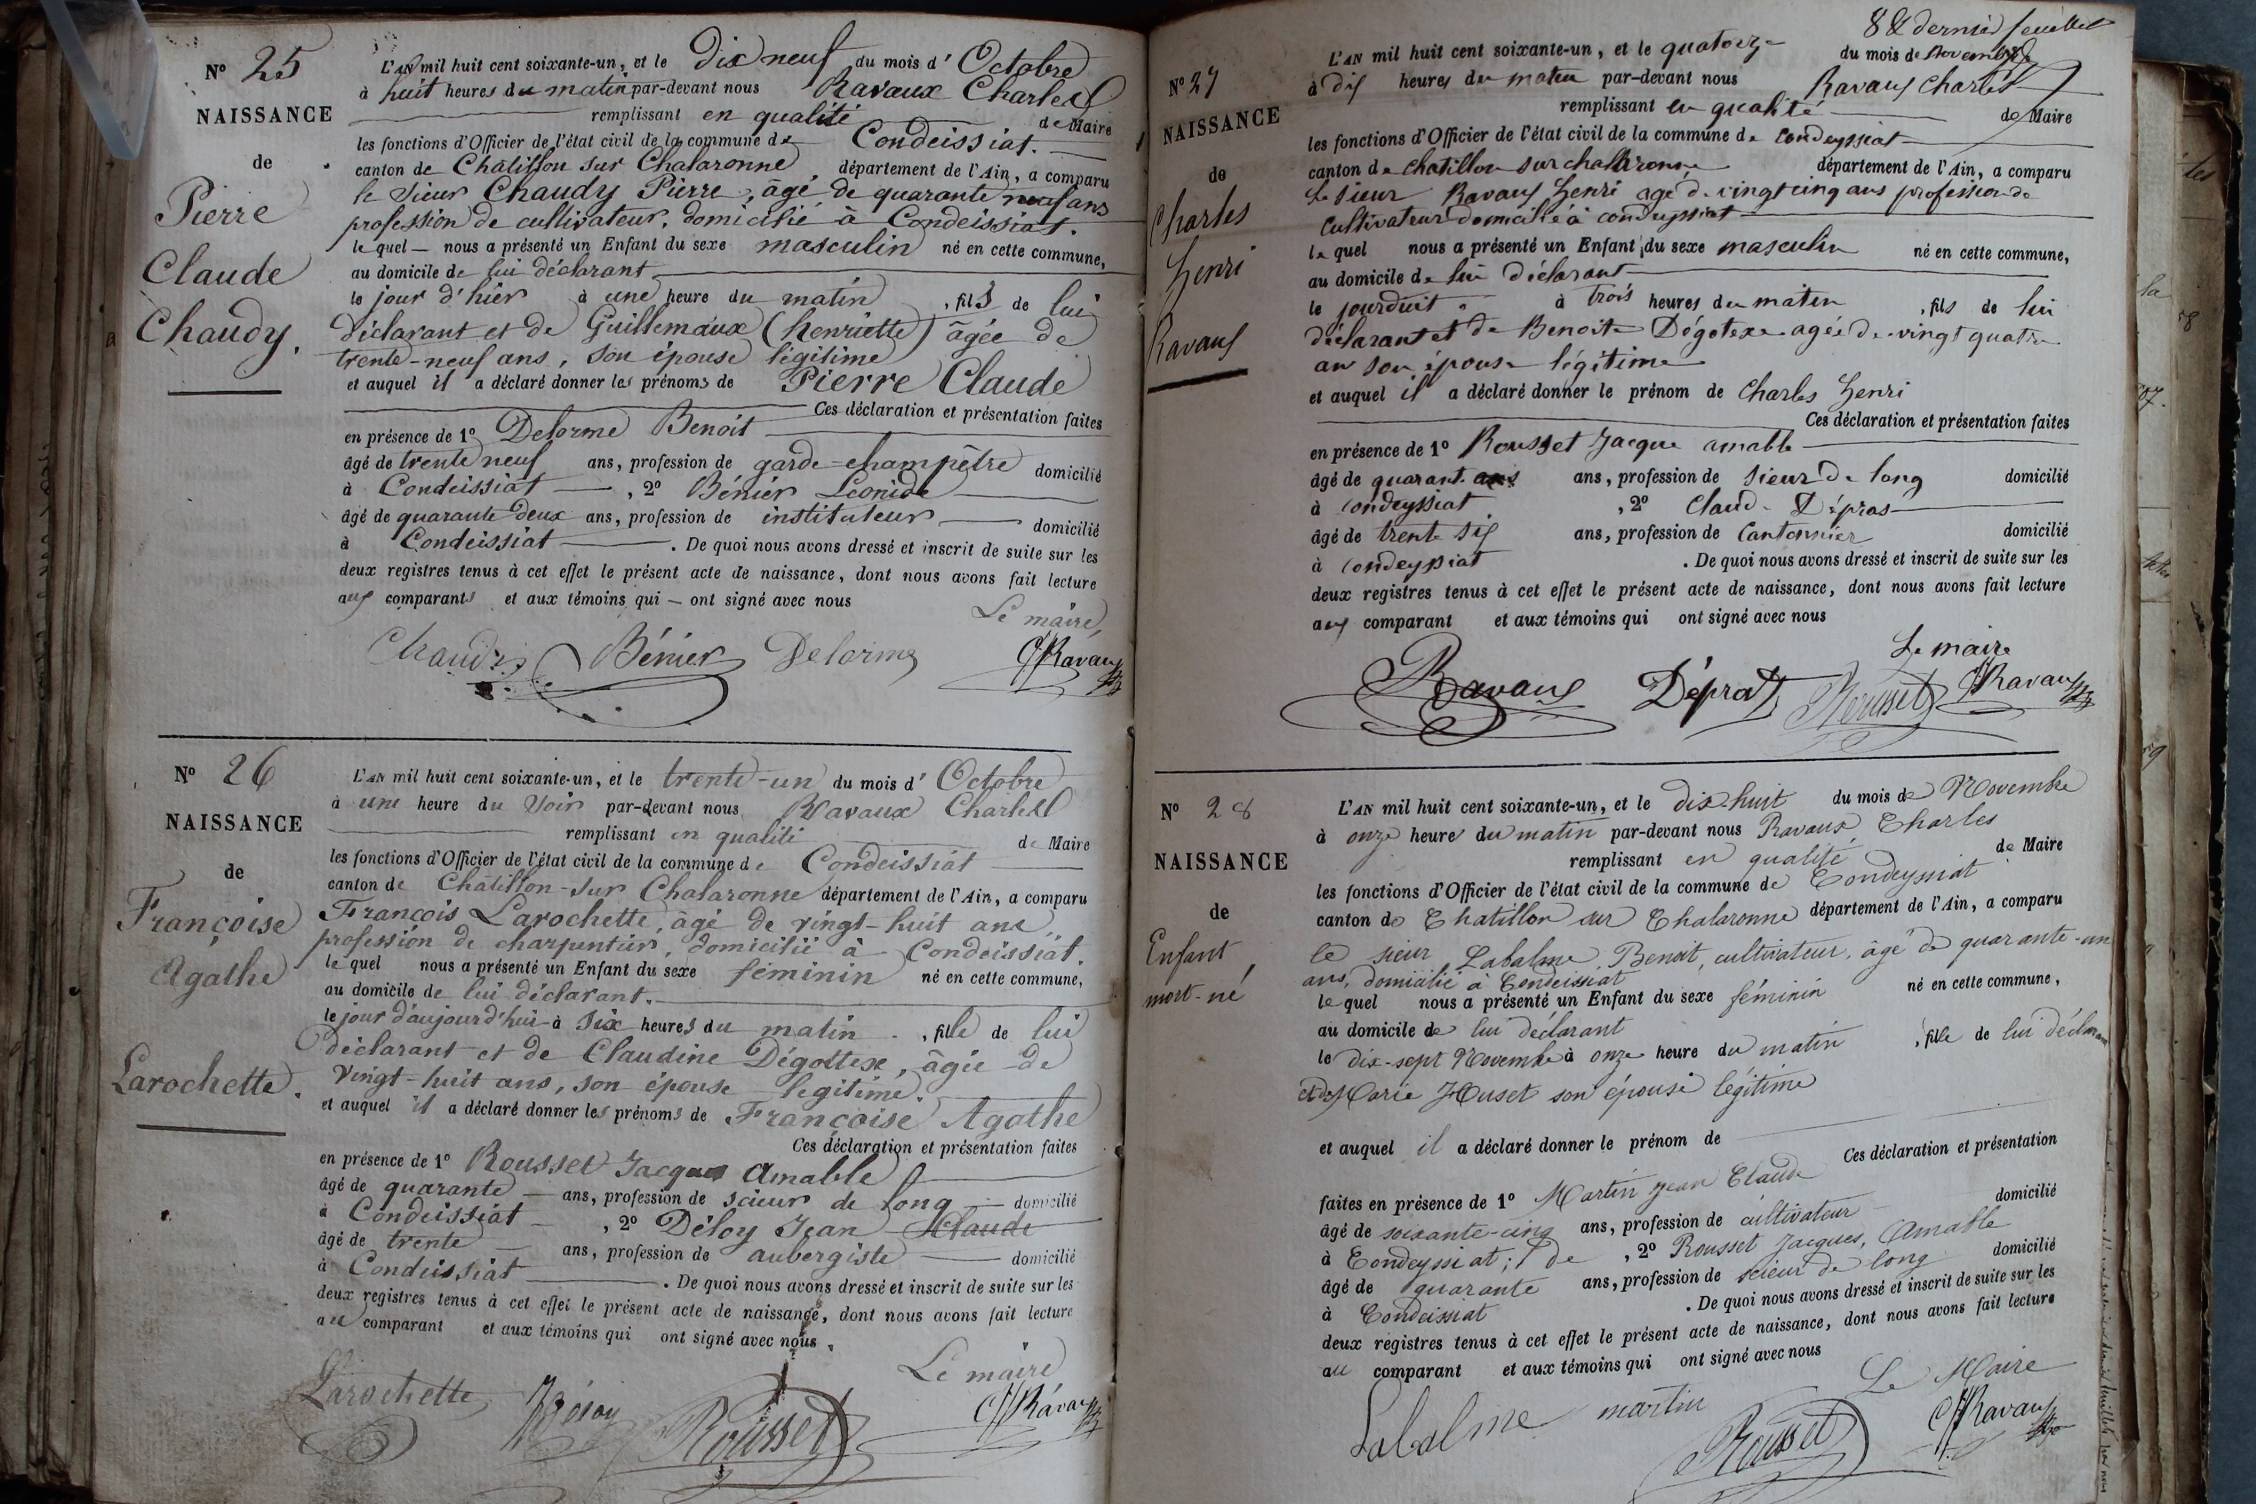 N° 25
NAISSANCE
de
Pierre
Claude
Chaudy.
L'AN mil huit cent soixante-un, et le dix neuf du mois d'Octobre
à huit heures du matin par-devant nous Ravaux Charles
remplissant en qualité de Maire
les fonctions d'Officier de l'état civil de la commune de Condeissiat.
canton de Châtillon sur Chalaronne département de l'Ain, a comparu
le sieur Chaudy Pierre, âgé de quarante neuf ans
profession de cultivateur, domicilié à Condeissiat.
le quel — nous a présenté un Enfant du sexe masculin né en cette commune,
au domicile de lui déclarant
le jour d'hier à une heure du matin, fils de lui
déclarant et de Guillemaux (henriette) âgée de
trente-neuf ans, son épouse légitime
et auquel il a déclaré donner les prénoms de Pierre Claude
Ces déclaration et présentation faites
en présence de 1° Delorme Benoit
âgé de trente neuf ans, profession de garde-champêtre domicilié
à Condeissiat, 2° Bénier Léonide
âgé de quarante deux ans, profession de instituteur domicilié
à Condeissiat. De quoi nous avons dressé et inscrit de suite sur les
deux registres tenus à cet effet le présent acte de naissance, dont nous avons fait lecture
aux comparants et aux témoins qui — ont signé avec nous
Le maire,
Chaudy Bénier Delorme C Ravaux
N° 26
NAISSANCE
de
Françoise
Agathe
Larochette.
L'AN mil huit cent soixante-un, et le trente-un du mois d'Octobre
à une heure du soir par-devant nous Ravaux Charles
remplissant en qualité de Maire
les fonctions d'Officier de l'état civil de la commune de Condeissiat
canton de Châtillon-sur Chalaronne département de l'Ain, a comparu
François Larochette, âgé de vingt-huit ans,
profession de charpentier, domicilié à Condeissiat.
le quel nous a présenté un Enfant du sexe féminin né en cette commune,
au domicile de lui déclarant.
le jour d'aujourd'hui à six heures du matin, fille de lui
déclarant et de Claudine Dégottex, âgée de
vingt-huit ans, son épouse légitime.
et auquel il a déclaré donner les prénoms de Françoise Agathe
Ces déclaration et présentation faites
en présence de 1° Rousset Jacques Amable
âgé de quarante ans, profession de scieur de long domicilié
à Condeissiat, 2° Déloy Jean Claude
âgé de trente ans, profession de aubergiste domicilié
à Condeissiat. De quoi nous avons dressé et inscrit de suite sur les
deux registres tenus à cet effet le présent acte de naissance, dont nous avons fait lecture
au comparant et aux témoins qui ont signé avec nous.
Le maire
Larochette Déloy Rousset C Ravaux
8 & dernier feuillet
N° 27
NAISSANCE
de
Charles
henri
Ravaux
L'AN mil huit cent soixante-un, et le quatorze du mois de Novembre
à dix heures du matin par-devant nous Ravaux Charles
remplissant en qualité de Maire
les fonctions d'Officier de l'état civil de la commune de Condeyssiat
canton de chatillon sur challaronne département de l'Ain, a comparu
Le sieur Ravaux henri agé de vingt cinq ans profession de
cultivateur domicilié à condeyssiat
le quel nous a présenté un Enfant du sexe masculin né en cette commune,
au domicile de lui déclarant
le jourduit à trois heures du matin, fils de lui
déclarant et de Benoite Dégotexe agée de vingt quatre
an son épouse légitime
et auquel il a déclaré donner le prénom de Charles henri
Ces déclaration et présentation faites
en présence de 1° Rousset Jacque amable
âgé de quarante ans, profession de sieur de long domicilié
à condeyssiat, 2° Claude Dépras
âgé de trente six ans, profession de Cantonnier domicilié
à condeyssiat. De quoi nous avons dressé et inscrit de suite sur les
deux registres tenus à cet effet le présent acte de naissance, dont nous avons fait lecture
aux comparant et aux témoins qui ont signé avec nous
Le maire
Ravaux Déprat Rousset C Ravaux
N° 28
NAISSANCE
de
Enfant
mort-né
L'AN mil huit cent soixante-un, et le dix-huit du mois de Novembre
à onze heure du matin par-devant nous Ravaux Charles
remplissant en qualité de Maire
les fonctions d'Officier de l'état civil de la commune de Condeyssiat
canton de Chatillon sur Chalaronne département de l'Ain, a comparu
le sieur Labalme, Benoit, cultivateur, âgé de quarante-un
ans, domicilié à Condeissiat
le quel nous a présenté un Enfant du sexe féminin né en cette commune,
au domicile de lui déclarant
le dix-sept Novembre à onze heure du matin, fille de lui déclarant
et de Marie son épouse légitime
et auquel il a déclaré donner le prénom de
Ces déclaration et présentation
faites en présence de 1° Martin Jean Claude
âgé de soixante-cinq ans, profession de cultivateur domicilié
à Condeyssiat; de, 2° Rousset Jacques, Amable
âgé de quarante ans, profession de scieur de long domicilié
à Condeissiat. De quoi nous avons dressé et inscrit de suite sur les
deux registres tenus à cet effet le présent acte de naissance, dont nous avons fait lecture
au comparant et aux témoins qui ont signé avec nous
Le Maire
Labalme martin Rousset C Ravaux